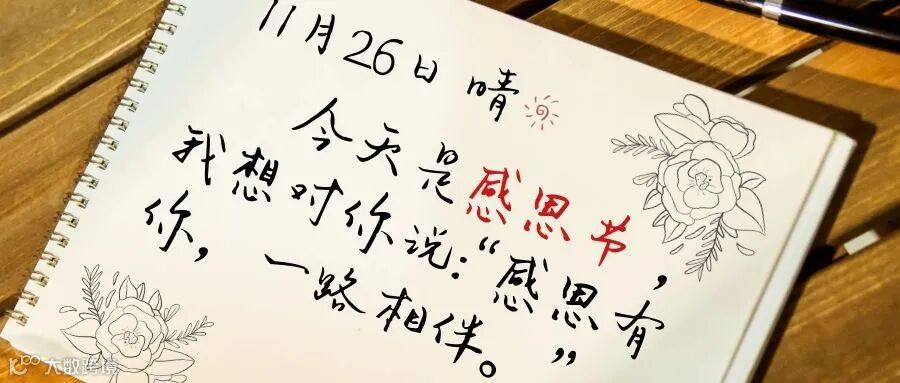 11月26日 晴
今天是感恩节，
我想对你说：“感恩有
你，一路相伴。”
大数跨境